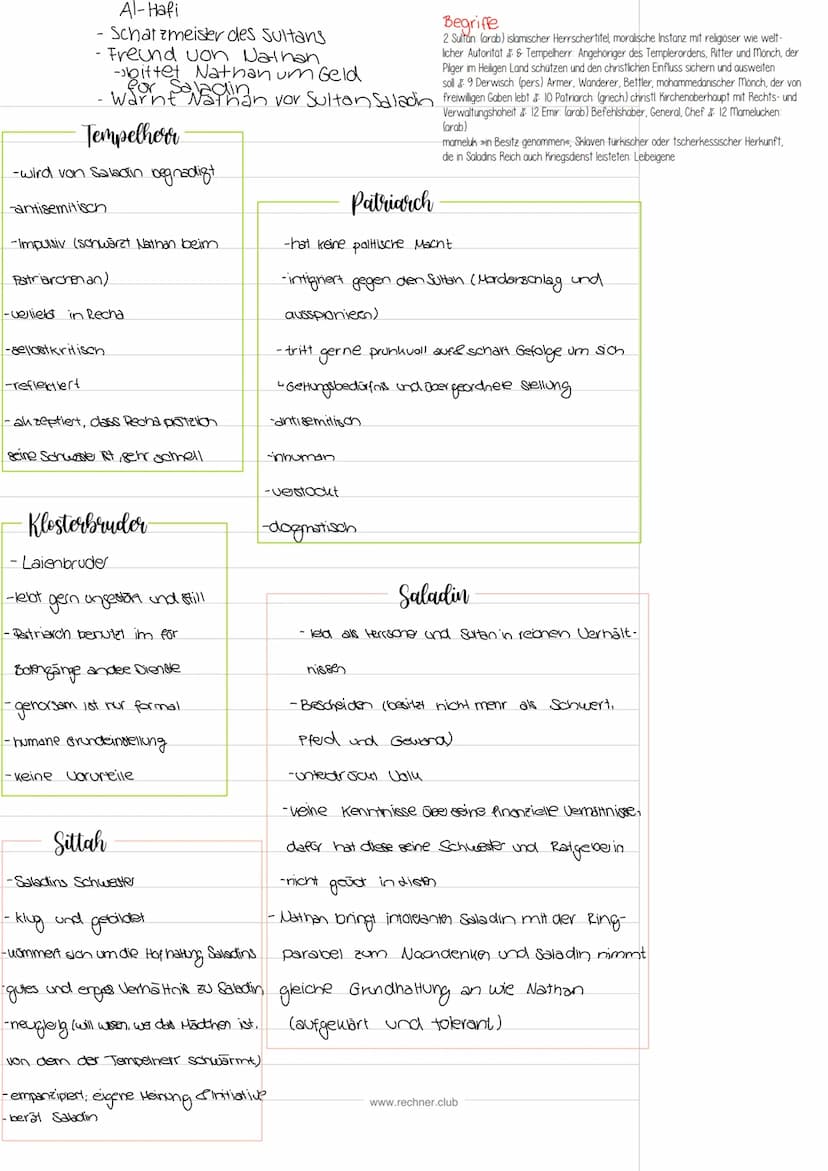 Al-Hafi
- Schatzmeister des Sultans
- Freund von Nathan
→bittet Nathan um Geld
für Saladin
- Warnt Nathan vor Sultan Saladin
Begriffe
2 Sultan (arab) islamischer Herrschertitel, moralische Instanz mit religiöser wie welt-
licher Autorität & 6 Tempelherr Angehöriger des Templerordens, Ritter und Mönch, der
Pilger im Heiligen Land schützen und den christlichen Einfluss sichern und ausweiten
soll & 9 Derwisch (pers) Armer, Wanderer, Bettler, mohammedanischer Mönch, der von
freiwilligen Gaben lebt & 10 Patriarch (griech) christl Kirchenoberhaupt mit Rechts- und
Verwaltungshoheit & 12 Emir (arab) Befehlshaber, General, Chef & 12 Mamelucken
(arab)
mameluk »in Besitz genommen«, Sklaven türkischer oder tscherkessischer Herkunft,
die in Saladins Reich auch Kriegsdienst leisteten Leibeigene
Tempelherr
-wird von Saladin begnadigt
-antisemitisch
-Impulsiv (schwärzt Nathan beim
Patriarchen an)
-verliebt in Recha
-selbstkritisch
-reflektiert
-akzeptiert, dass Recha plötzlich
seine Schwester ist, sehr schnell
Patriarch
-hat keine politische Macht
-intigriert gegen den Sultan (Mordanschlag und
ausspionieren)
-tritt gerne prunkvoll auf & schart Gefolge um sich
↳Geltungsbedürfnis und übergeordnete Stellung
-antisemitisch
-inhuman
-verstockt
-dogmatisch
Klosterbruder
- Laienbruder
-lebt gern ungestört und still
-Patriarch benutzt ihn für
Botengänge andee Dienste
-gehorsam ist nur formal
-humane Grundeinstellung
-keine Vorurteile
Saladin
- lebt als Herrscher und Sultan in reichen Verhält-
nissen
-Bescheiden (besitzt nicht mehr als Schwert,
Pferd und Gewand)
-unterdrückt Volk
-keine Kenntnisse über seine finanzielle Verhältnisse,
dafür hat diese seine Schwester und Ratgeberin
-nicht geübt in listen
-Nathan bringt intoleranten Saladin mit der Ring-
parabel zum Nachdenken und Saladin nimmt
gleiche Grundhaltung an wie Nathan
(aufgeklärt und tolerant)
Sittah
-Saladins Schwester
- klug und gebildet
-kümmert sich um die Hofhaltung Saladins
-gutes und enges Verhältnis zu Saladin
-neugierig (will wissen, wer das Mädchen ist,
von dem der Tempelherr schwärmt)
-emanzipiert; eigene Meinung & Initiative
- berät Saladin
www.rechner.club